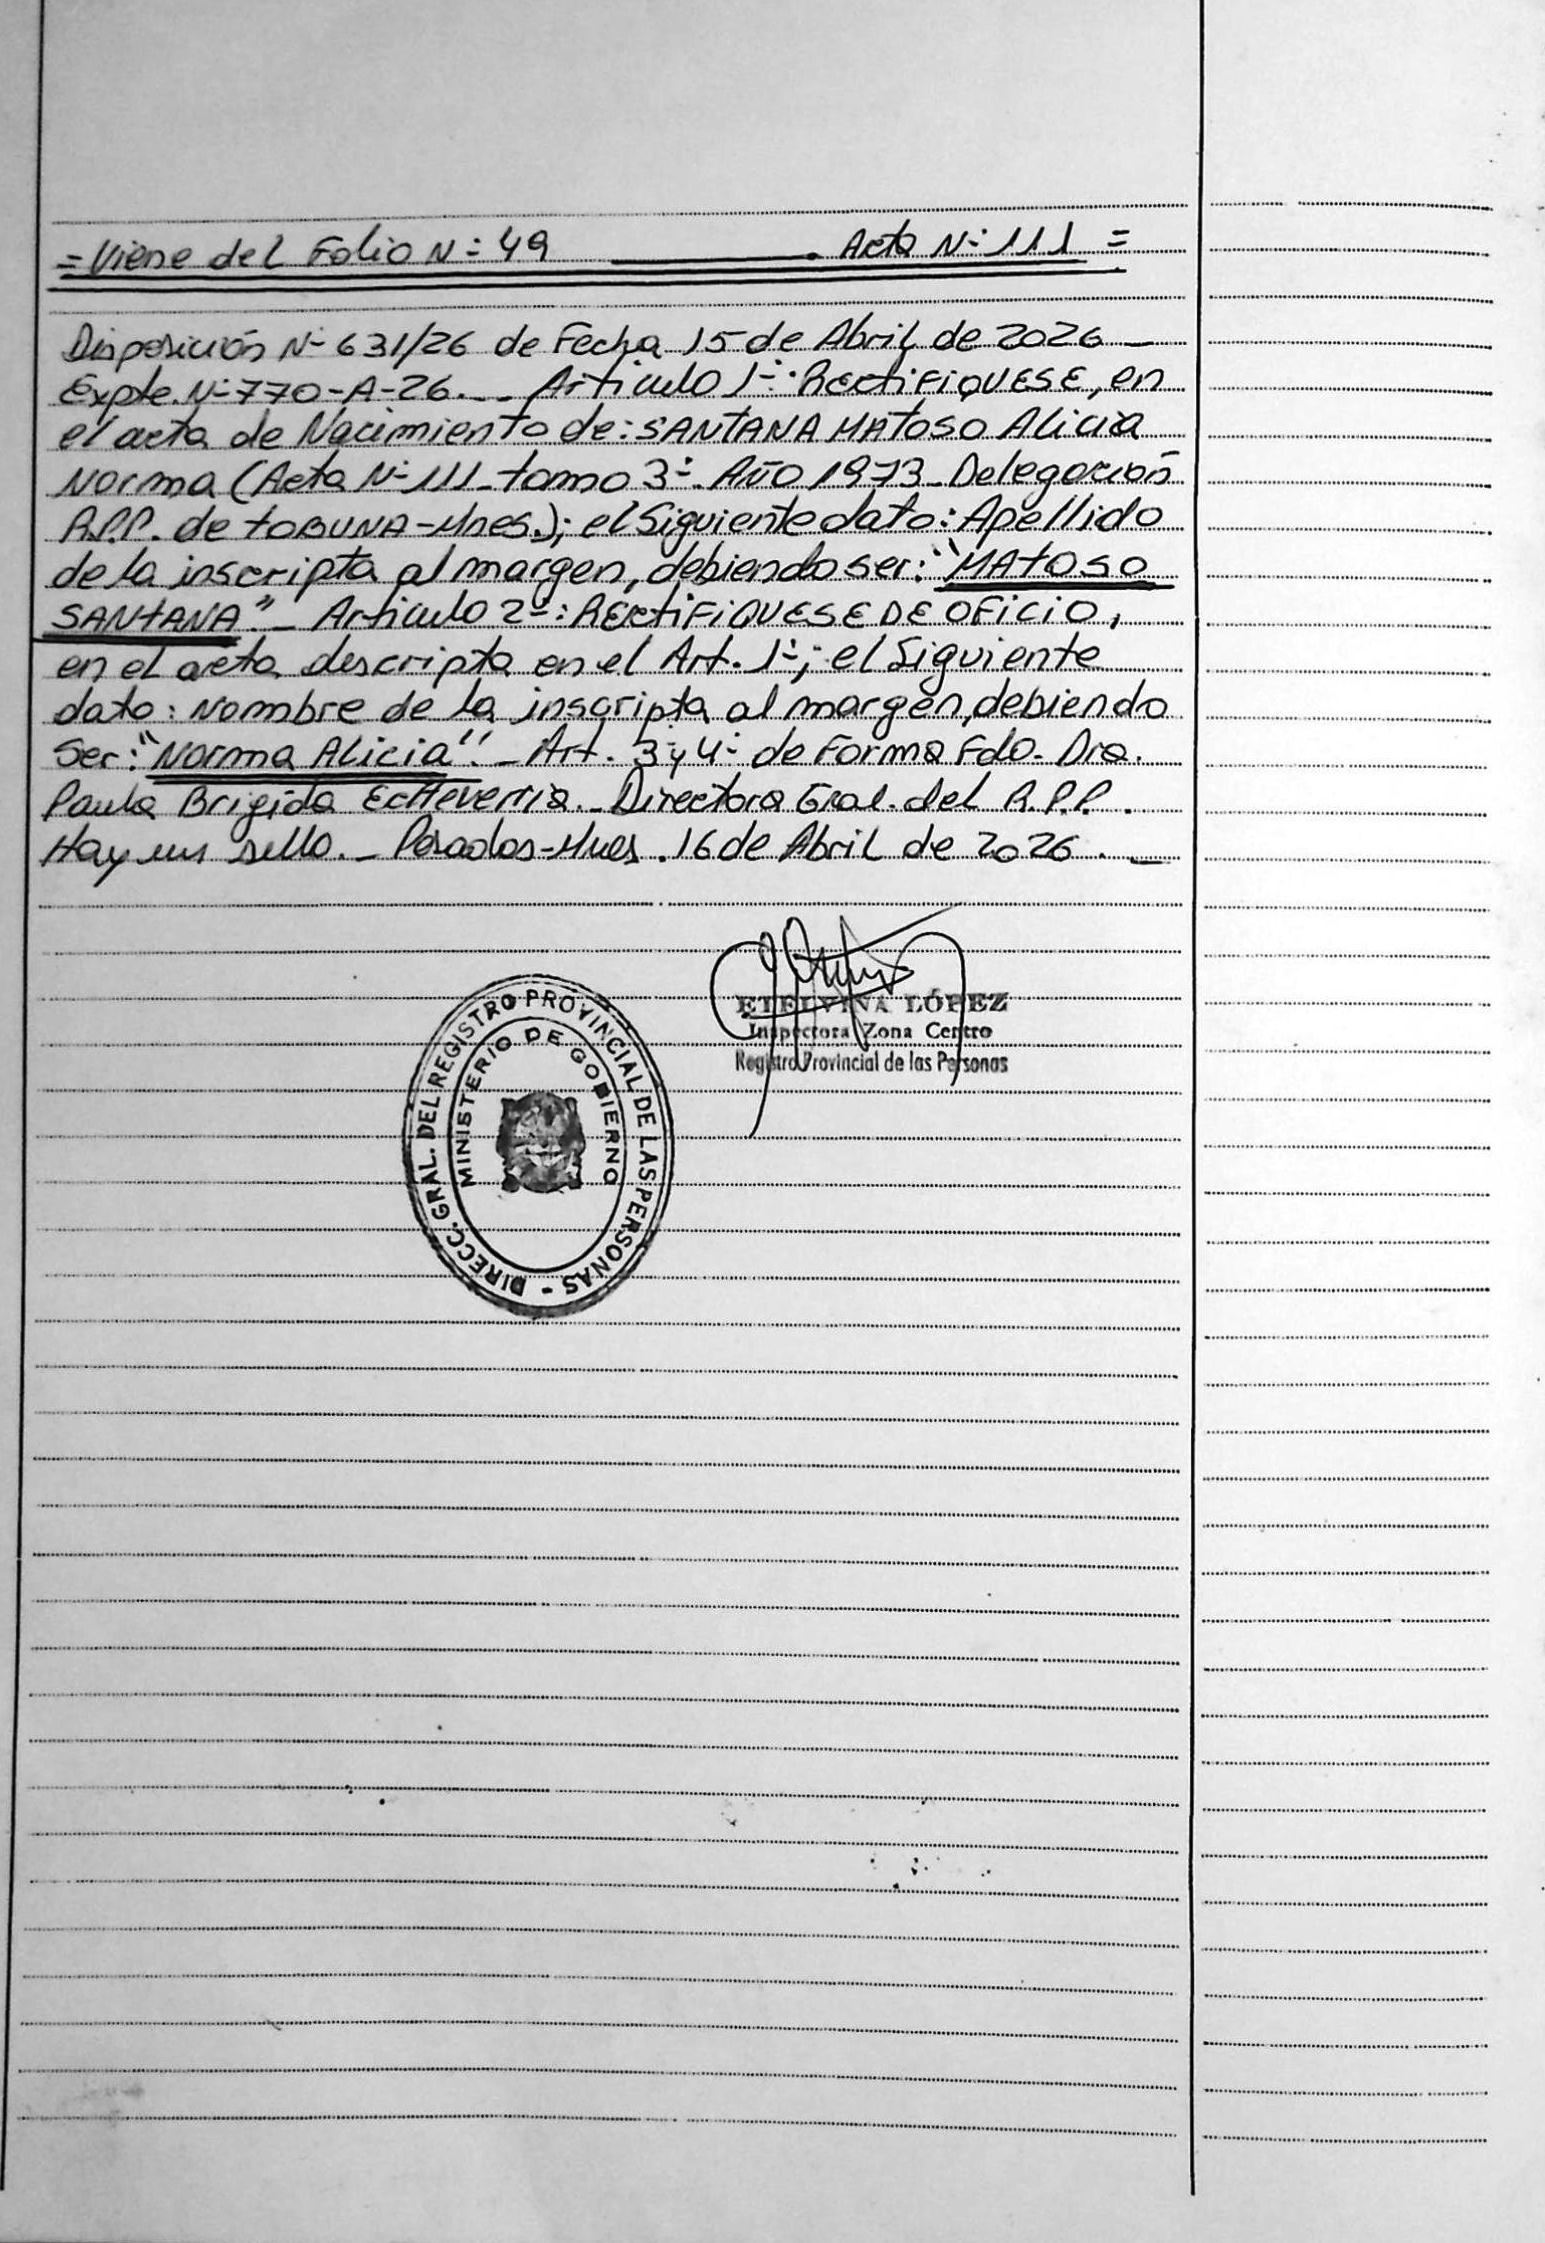 = Viene del Folio N: 49 ________. Acta N: 111 =
Disposición N- 631/26 de Fecha 15 de Abril de 2026 _
Expte. N-770-A-26._ _ Articulo 1-: RectiFiQUESE, en
el acta de Nacimiento de: SANTANA MATOSO Alicia
Norma (Acta N-111_tomo 3-. AÑO 1973_Delegación
R.P.P. de tOBUNA-Mnes.); el Siguiente dato: Apellido
de la inscripta al margen, debiendo ser: "MAtOSO
SANtANA"._ Articulo 2-: RECtiFiQUESE DE OFiCiO,
en el acta descripta en el Art. 1-; el Siguiente
dato: Nombre de la inscripta al margen, debiendo
Ser: "Norma Alicia"._ Art. 3 y 4- de Forma Fdo. Dra.
Paula Brigida EcHeverria._ Directora Gral. del R.P.P.
Hay un sello._ Posadas-Mnes. 16 de Abril de 2026. _
ETELVINA LÓPEZ
Inspectora Zona Centro
Registro Provincial de las Personas
DIRECC. GRAL. DEL REGISTRO PROVINCIAL DE LAS PERSONAS -
MINISTERIO DE GOBIERNO